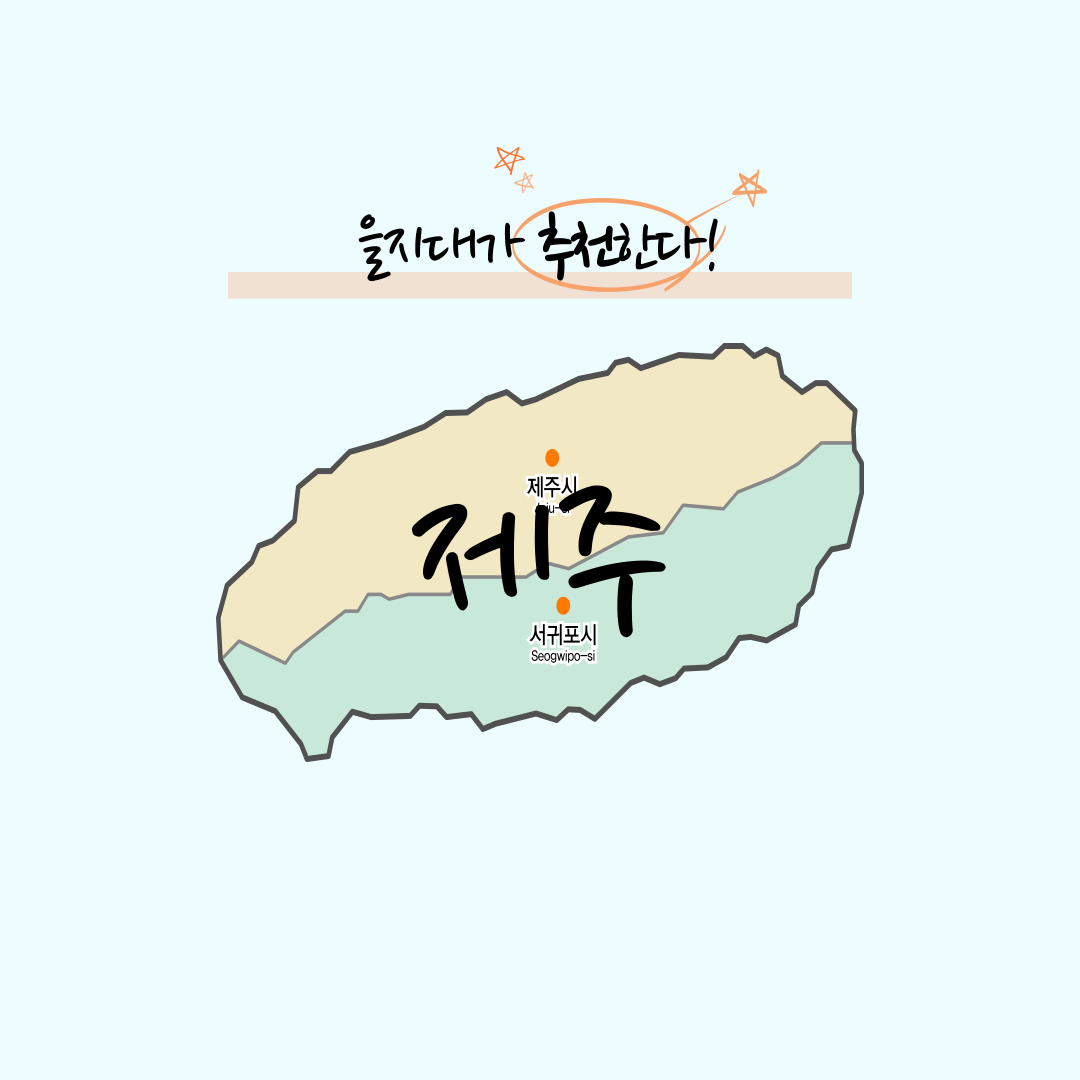 을지대가 추천한다!
제주시
제주
서귀포시
Seogwipo-si